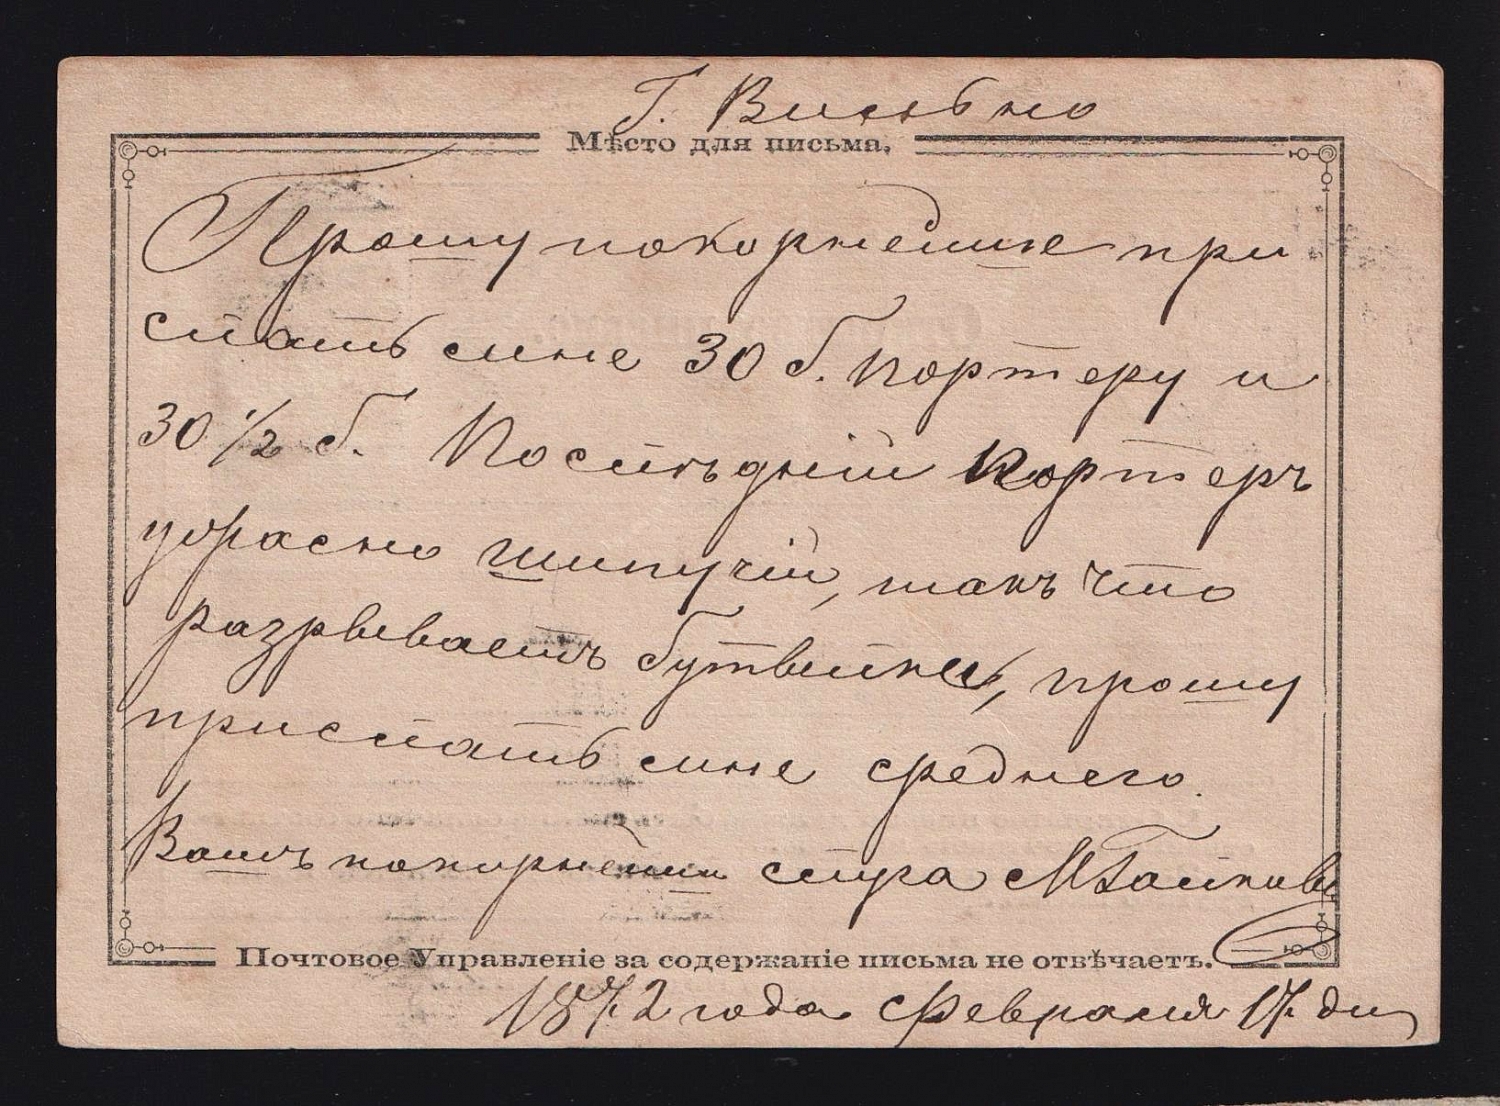 Г. Вильно
Мѣсто для письма.
Прошу покорнейше при
слать мне 30 б. портеру и
30 1/2 б. Послѣдній портеръ
ужасно шипучій, такъ что
разрывaетъ бутылки, прошу
прислать мне среднего.
Вашъ покорнейши слуга М
Почтовое Управленіе за содержаніе письма не отвѣчаетъ.
1872 года Февраля 17. дня